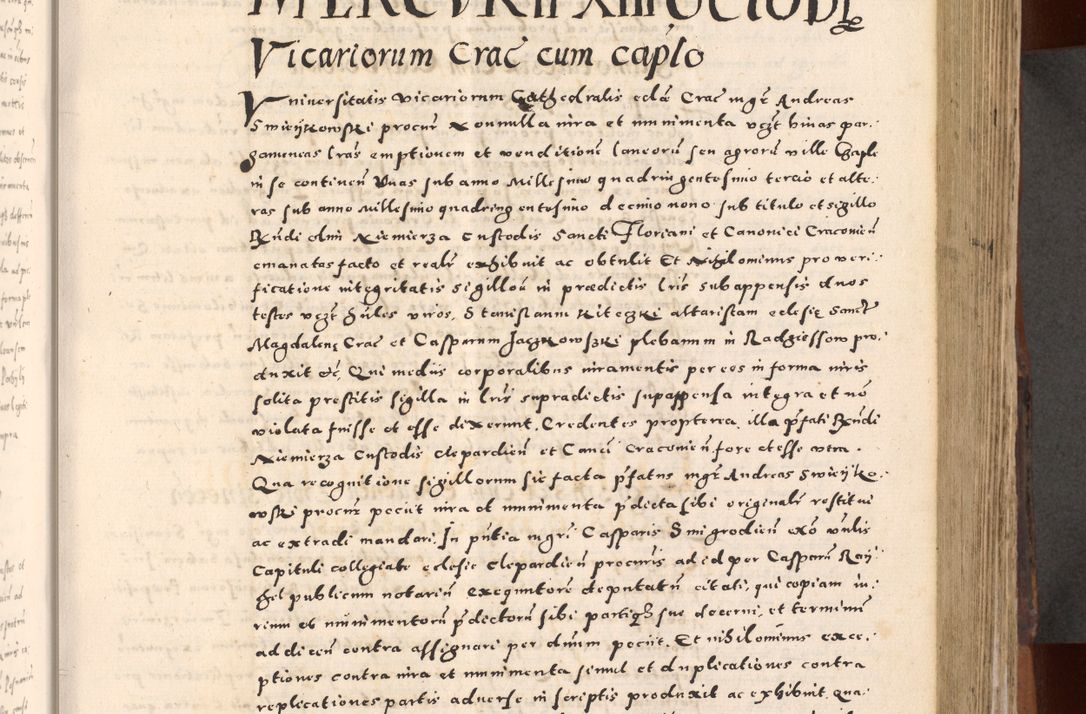 MERCVRII XIII OCTOBR
Vicariorum Crac cum caplo
Vniuersitatis vicariorum Cathedralis eclae Crac mgr Andreas
Swieijkowski procur nonnulla iura et munimenta vczt binas par-
gameneas lras emptionem et venditionem laneorū seu agrorū ville Czaple
in se continen vnas sub anno Millesimo quadringentesimo tercio et alte-
ras sub anno Millesimo quadringentesimo decimo nono sub titulo et sigillo
Rndi olim Niemierza Custodis Sancti Floriani et Canonici Cracouien
emanatas facto et realr exhibuit ac obtulit Et Nihilominus pro veri-
ficatione integritatis sigillorū in praedictis lris subappensis duos
testes vczt hūles viros, Stanislaum Kiteczki altaristam eclesię Sanctę
Magdalenę Crac et Casparum Jaczkowszki plebanum in Radziessow pro-
duxit etc, Qui medijs corporalibus iuramentis per eos in forma iuris
solita prestitis sigilla in lris supradictis supappensa integra et nō
violata fuisse et esse dixerunt, Credentes propterea, illa pfati Rndi
Niemierza Custodis Clepardien et Canci Cracouien fore et esse vera.
Qua recognitione sigillorum sic facta pfatus mgr Andreas Swieijko-
wski procur peciit iura et munimenta pdicta sibi originalr restitui
ac extradi mandari. In pntia mgri Casparis Smigrodien exō vnlis
Capituli collegiate eclesie Clepardien procuris ad id per Casparū Raij
gel publicum notariū exequutore deputatū citati, qui copiam iu-
rium et munimentorū pdictorū sibi partiqz sue decerni, et terminū
ad dicen contra assignari per dnum peciit. Et nihilominus exce-
ptiones contra iura et munimenta simul et duplicationes contra
replicationes partis aduerse in scriptis produxit ac exhibuit, qua-